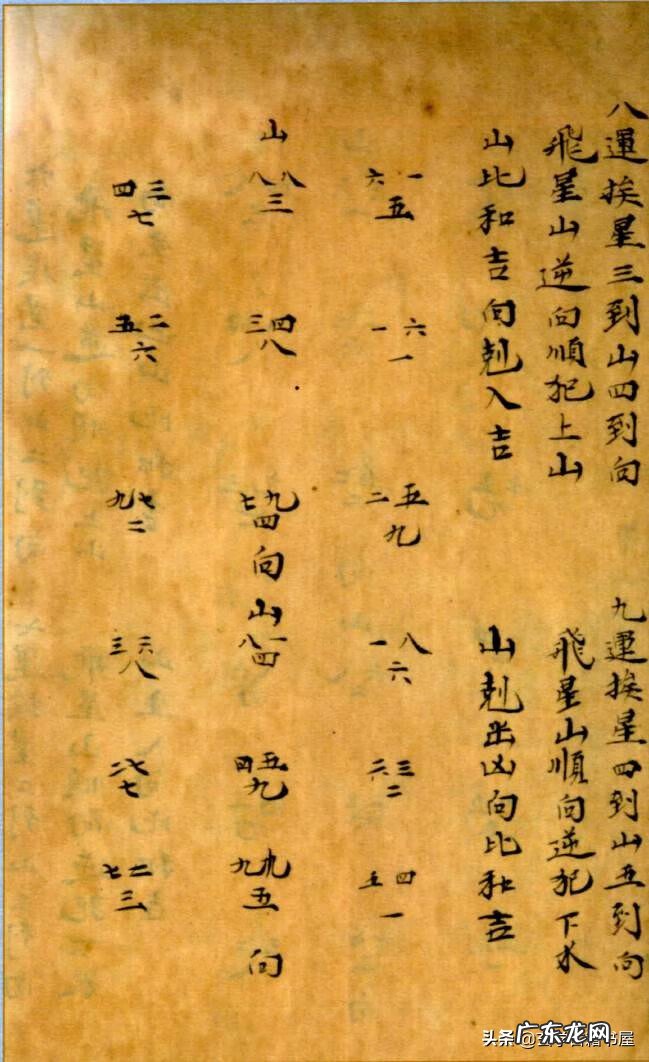 八運挨星三到山四到向
飛星山逆向順犯上山
山比和吉向剋入吉
六一
五
一六
一
二五
九
山
八八
三
三四
八
七九
四
向
四三
七
五二
六
九七
二
九運挨星四到山五到向
飛星山順向逆犯下水
山剋出凶向比和吉
一八
六
六三
二
五四
一
山
八一
四
四五
九
九九
五
向
三六
八
八七
七
七二
三
头条
书屋
广东龙网